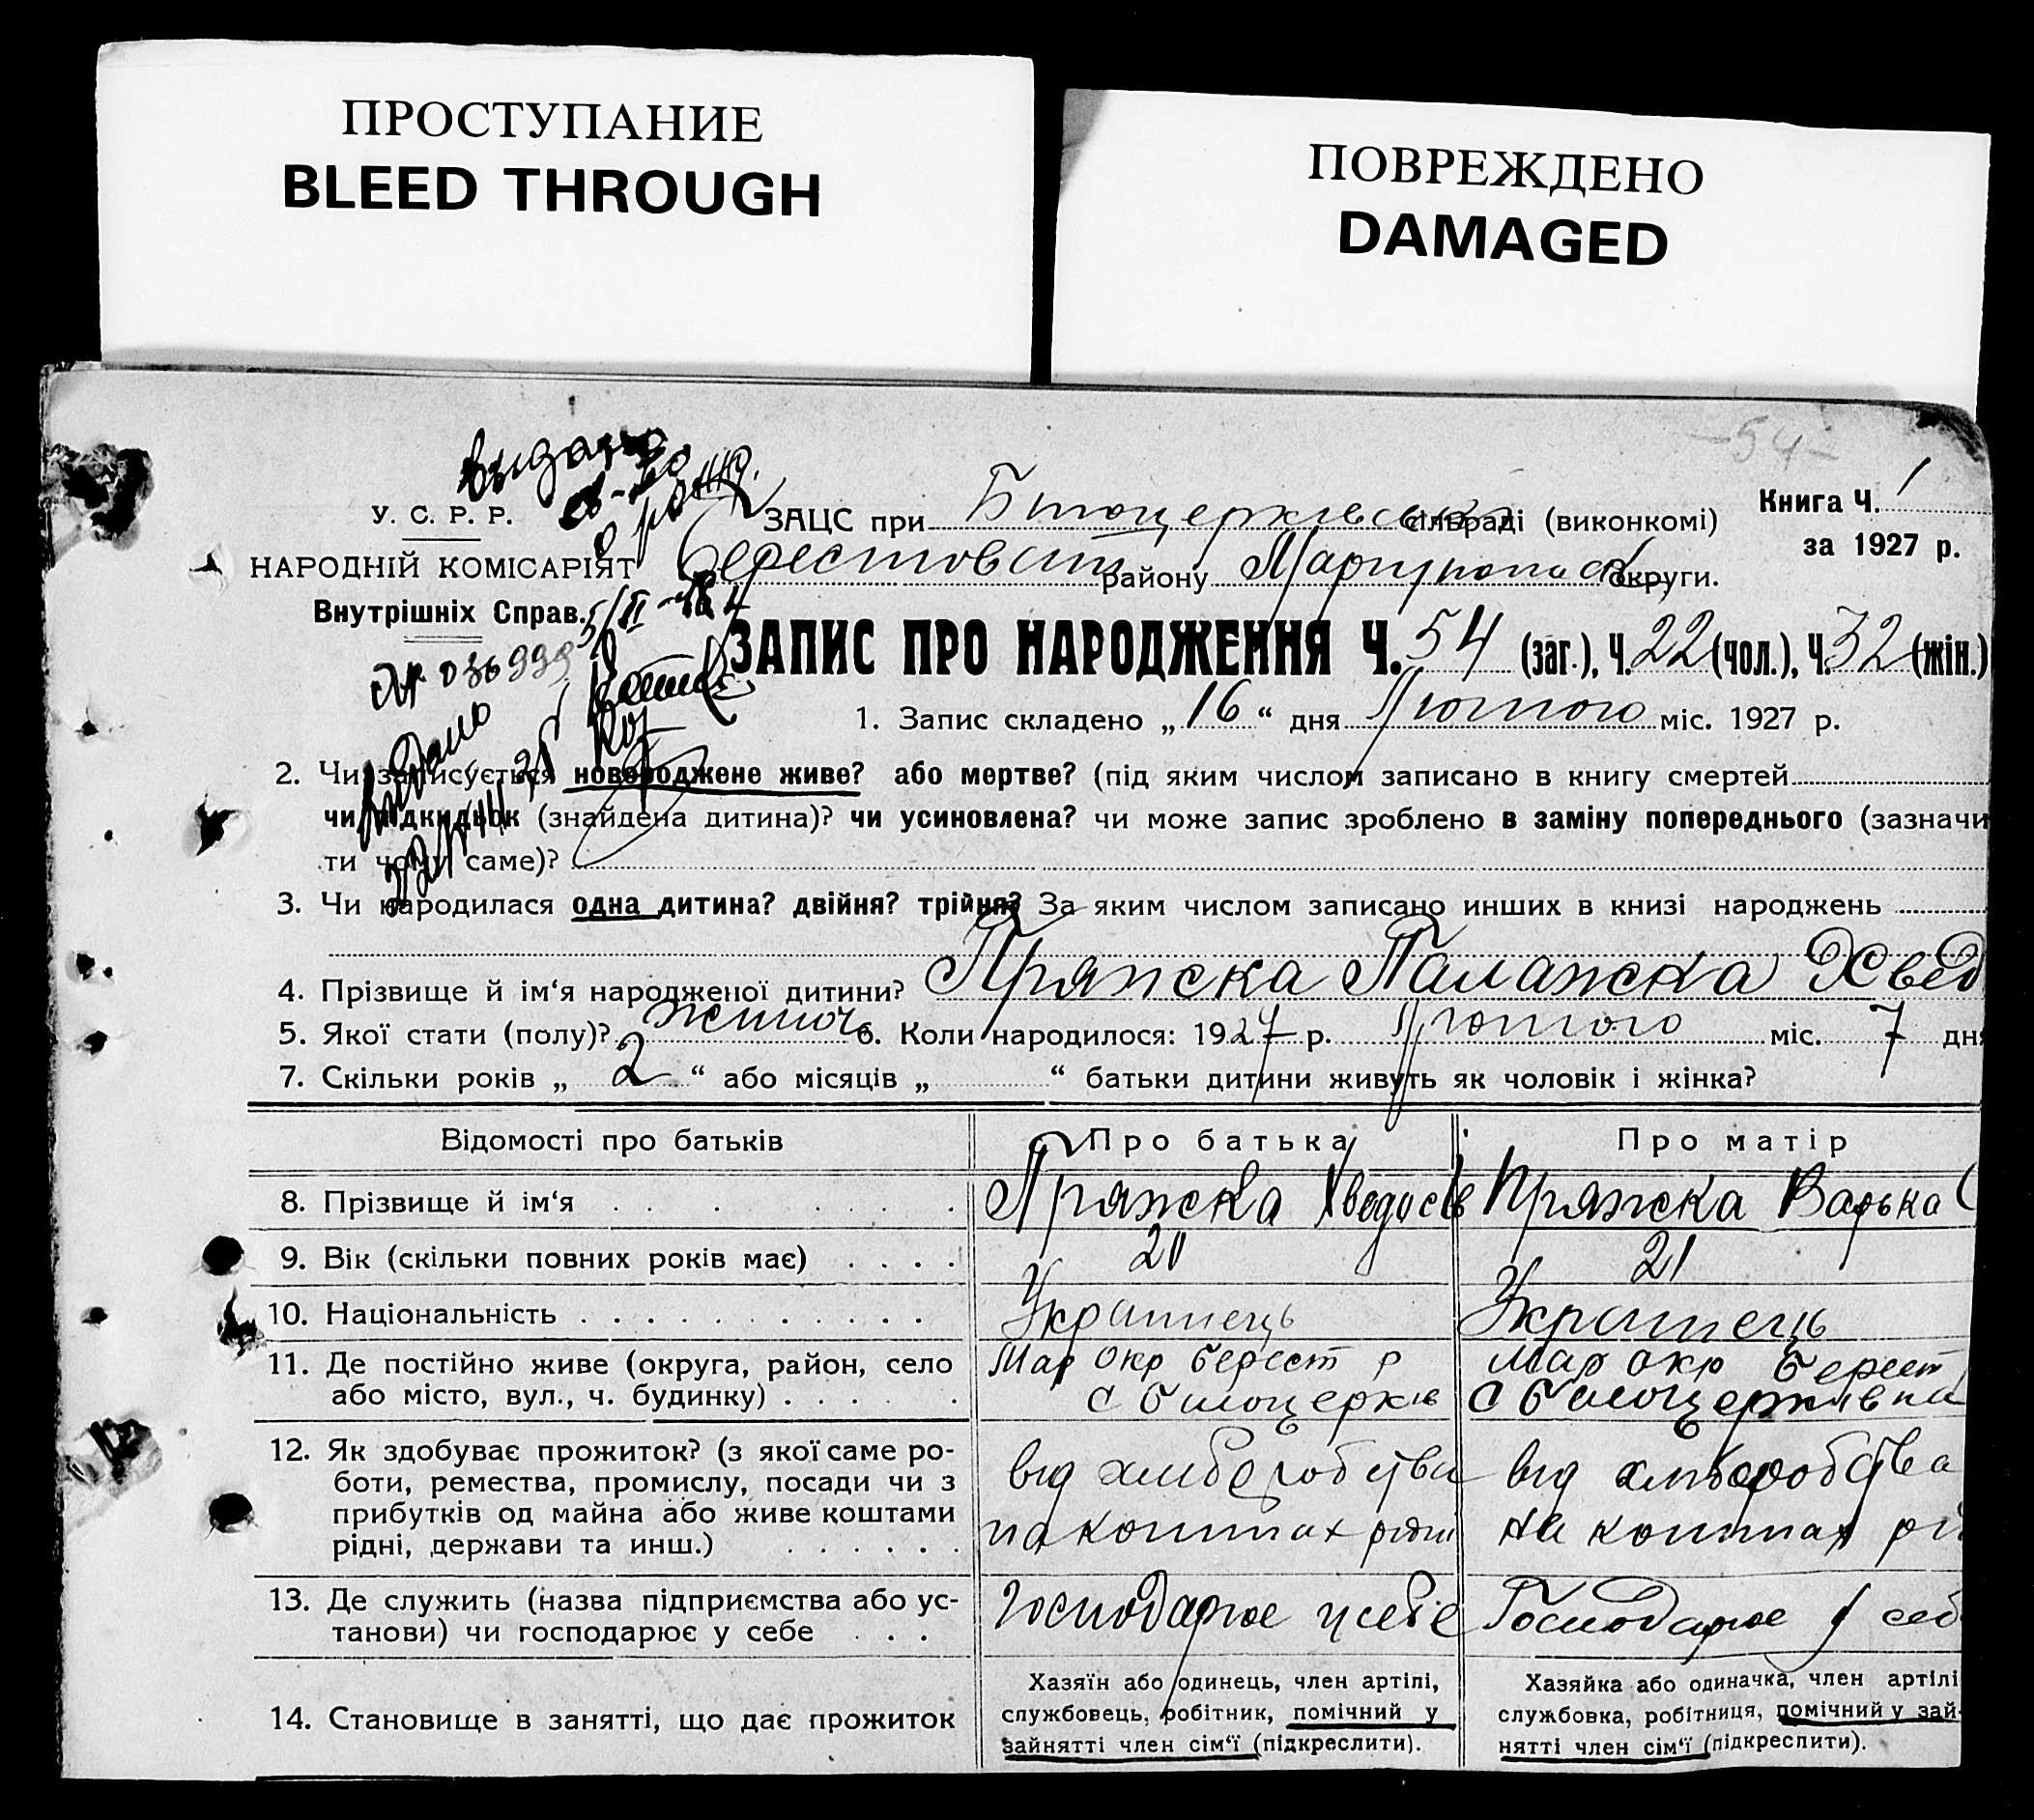 ПРОСТУПАНИЕ
BLEED THROUGH
ПОВРЕЖДЕНО
DAMAGED
-54-
Видано
У. С. Р. Р.
НАРОДНІЙ КОМІСАРІЯТ
Внутрішніх Справ.
ЗАЦС при Білоцерківській сільраді (виконкомі)
Книга Ч. 1
за 1927 р.
Берестовськ району Маріупольськ округи.
ЗАПИС ПРО НАРОДЖЕННЯ Ч. 54 (заг.), Ч. 22 (чол.), Ч. 32 (жін.)
Видано
1. Запис складено „ 16 “ дня Лютого міс. 1927 р.
2. Чи записується новороджене живе? або мертве? (під яким числом записано в книгу смертей
чи підкидьок (знайдена дитина)? чи усиновлена? чи може запис зроблено в заміну попереднього (зазначи
ти чому саме)?
3. Чи народилася одна дитина? двійня? трійня? За яким числом записано инших в книзі народжень
4. Прізвище й ім‘я народженої дитини? Пряжска Палажска Хвед
5. Якої стати (полу)? жіноч 6. Коли народилося: 1927 р. Лютого міс. 7 дня
7. Скільки років „ 2 “ або місяців „ “ батьки дитини живуть як чоловік і жінка?
Відомості про батьків Про батька Про матір
8. Прізвище й ім‘я Пряжска Хведосів Пряжска Варька
9. Вік (скільки повних років має) 20 21
10. Національність Українець Українець
11. Де постійно живе (округа, район, село Мар окр берест р Мар окр берест
або місто, вул., ч. будинку) с білоцерків с білоцерківка
12. Як здобуває прожиток? (з якої саме ро-
боти, ремества, промислу, посади чи з від хліборобства від хліборобства
прибутків од майна або живе коштами
рідні, держави та инш.) на коштах рідні на коштах рі
13. Де служить (назва підприємства або ус- Господарює у себе Господарює у себ
танови) чи господарює у себе
Хазяїн або одинець, член артілі, Хазяйка або одиначка, член артілі
14. Становище в занятті, що дає прожиток службовець, робітник, помічний у службовка, робітниця, помічний у зай-
зайнятті член сім‘ї (підкреслити). нятті член сім‘ї (підкреслити).